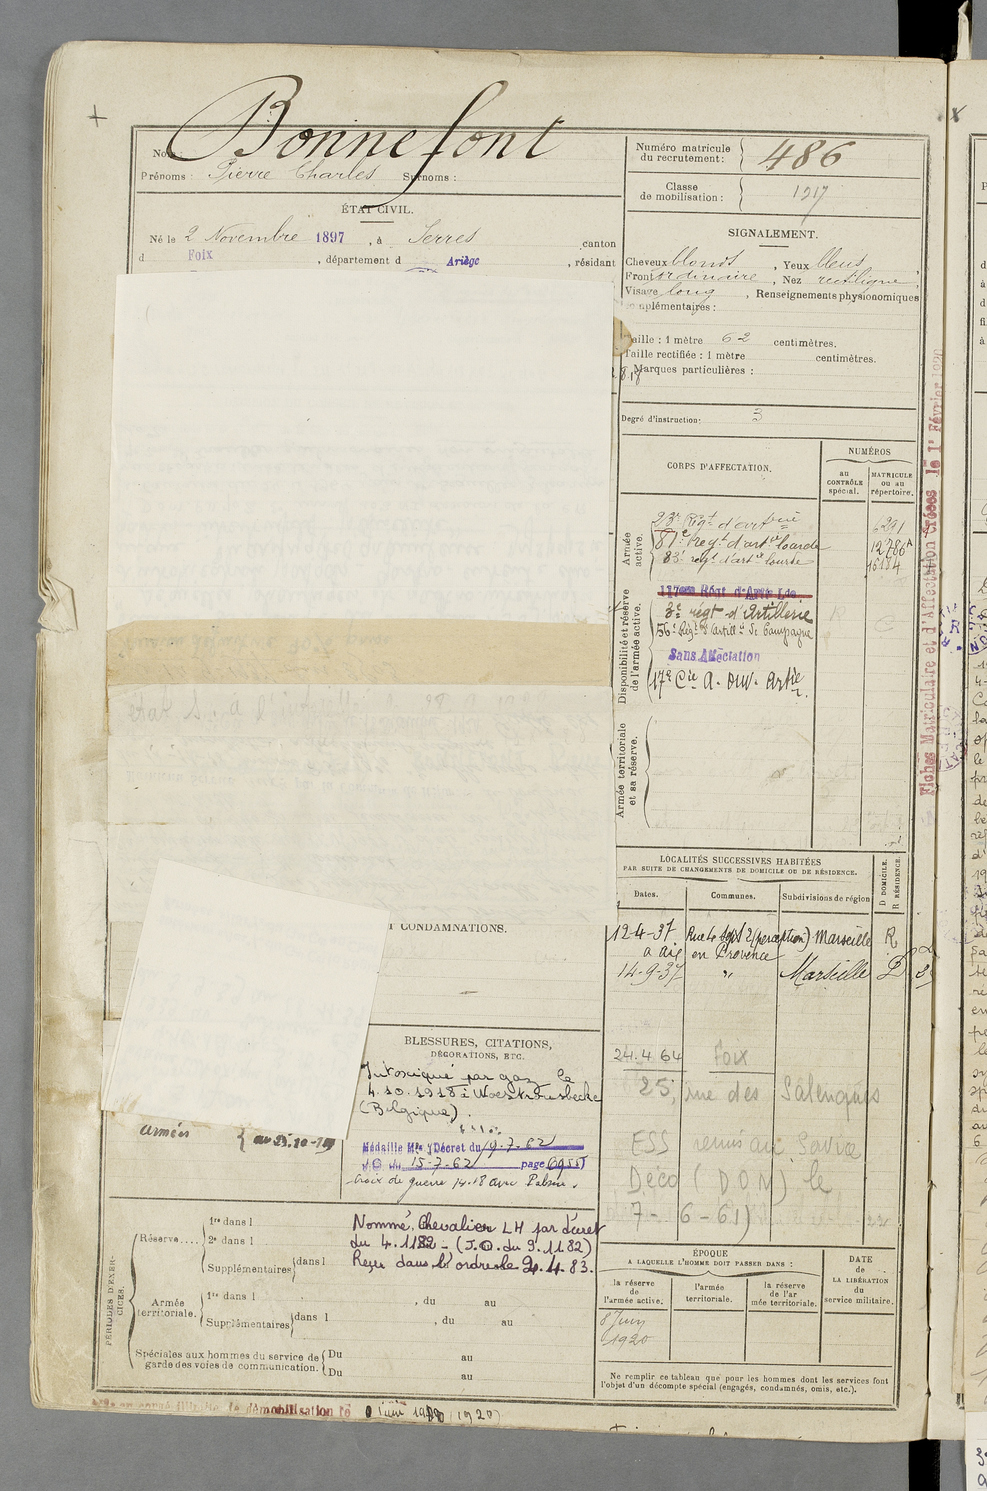 Bonnefont
Nom :
Prénoms : Pierre Charles Surnoms :
Numéro matricule du recrutement : 486
Classe de mobilisation : 1917
ÉTAT CIVIL.
Né le 2 Novembre 1897, à Serres canton
d Foix, département d Ariège, résidant
SIGNALEMENT.
Cheveux blonds, Yeux bleus,
Front ordinaire, Nez rectiligne,
Visage long, Renseignements physionomiques
complémentaires :
Taille : 1 mètre 62 centimètres.
Taille rectifiée : 1 mètre centimètres.
Marques particulières :
Degré d'instruction: 3
CORPS D'AFFECTATION.
NUMÉROS
au CONTRÔLE spécial.
MATRICULE ou au répertoire.
Armée active.
23e Régt d'artie 6291
81e Regt d'artie lourde 12786A
83e regt d'artie lourde 16184
Disponibilité et réserve de l'armée active.
117eme Régt d'Artie Lde
3e régt d'Artillerie
56e Régt d'Artillie de Campagne
Sans Affectation
17e Cie A. Ouv. Artie
Armée territoriale et sa réserve.
Fiches Matriculaire et d'Affectation créées le 1er Février 1920
LOCALITÉS SUCCESSIVES HABITÉES
PAR SUITE DE CHANGEMENTS DE DOMICILE OU DE RÉSIDENCE.
D DOMICILE. R RÉSIDENCE.
Dates. Communes. Subdivisions de région
12-4-37 Rue 4 sept 2 (perception) Marseille R
à Aix en Provence
14-9-37 " Marseille D
24.4.64 Foix
25, rue des Salenques
ESS remis au Service
Déco (DON) le
7-6-61)
T CONDAMNATIONS.
BLESSURES, CITATIONS,
DÉCORATIONS, ETC.
Intoxiqué par gaz le
4.10.1918 à
(Belgique).
Médaille Mre Décret du 9.7.62
J.O. du 15-7-62 page 6955
Croix de guerre 14.18 avec Palme.
armées
Nommé Chevalier LH par décret
du 4.11.82 - (J.O. du 9.11.82)
Reçu dans l'ordre le 24.4.83.
PÉRIODES D'EXERCICES.
Réserve....
1re dans l
2e dans l
Supplémentaires dans l
Armée territoriale.
1re dans l , du au
Supplémentaires dans l , du au
Spéciales aux hommes du service de garde des voies de communication.
Du au
Du au
ÉPOQUE
A LAQUELLE L'HOMME DOIT PASSER DANS :
la réserve de l'armée active.
l'armée territoriale.
la réserve de l'armée territoriale.
DATE de LA LIBÉRATION du service militaire.
8 Juin 1920
Ne remplir ce tableau que pour les hommes dont les services font
l'objet d'un décompte spécial (engagés, condamnés, omis, etc.).